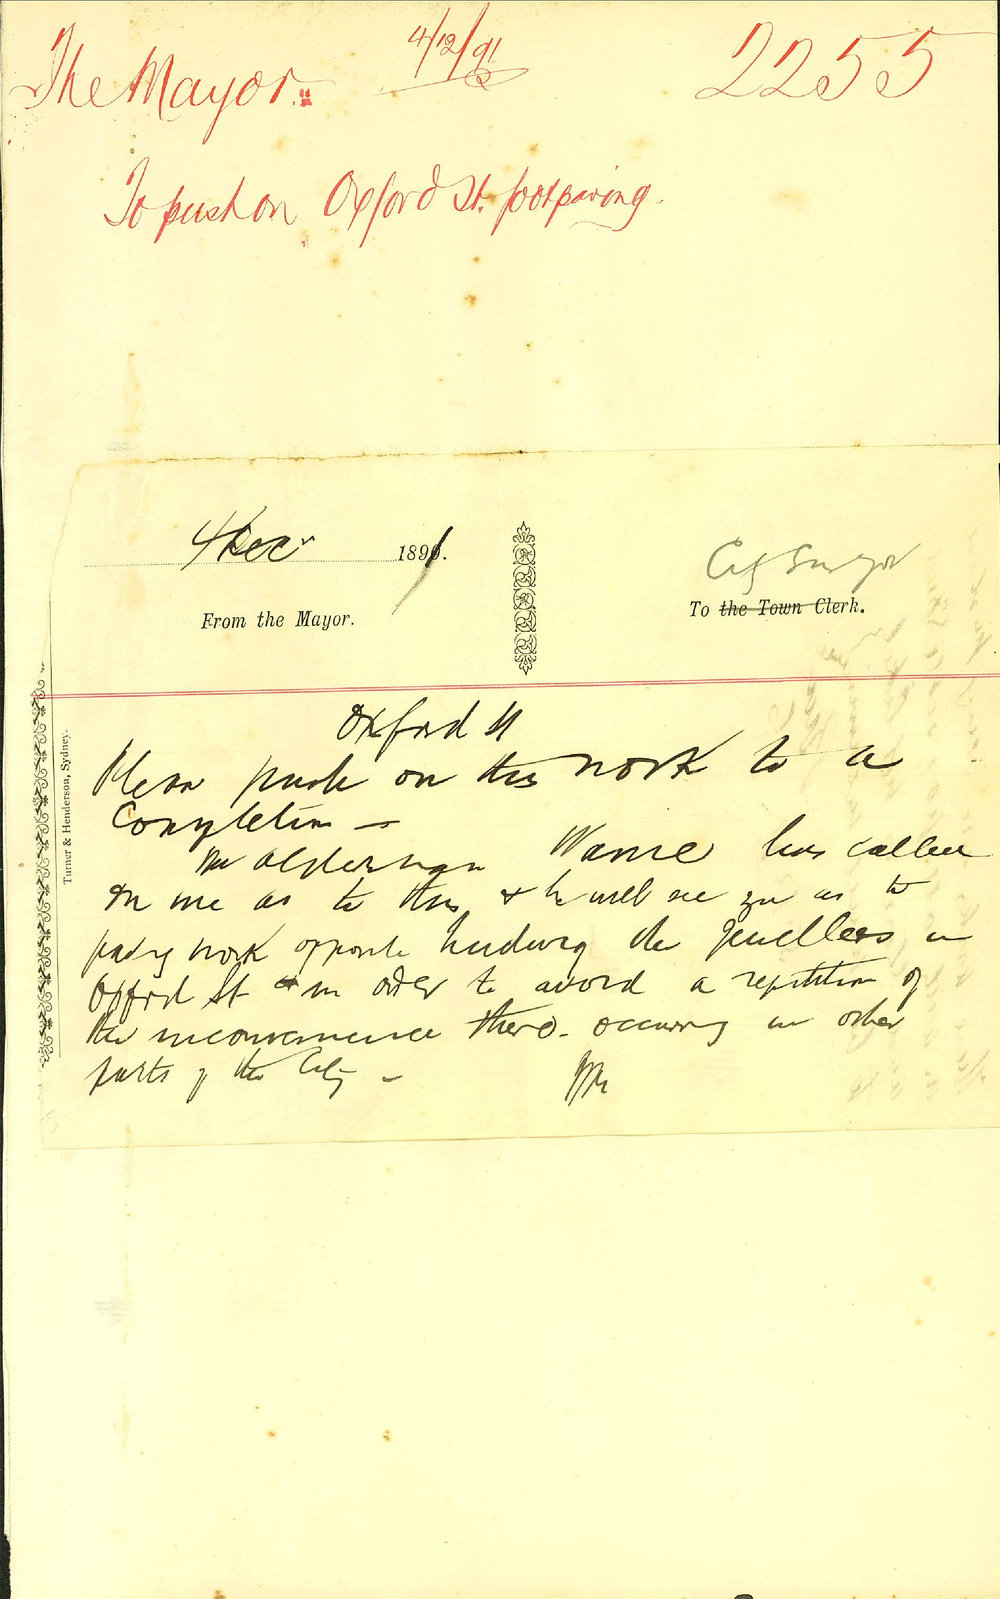 The Mayor. 4/12/91 2255
To push on Oxford St. footpaving.
4 Decr 1891.
From the Mayor.
City Surveyor
To the Town Clerk.
Turner & Henderson, Sydney.
Oxford St
Please push on this work to a
Completion —
Mr Alderman has called
on me as to this & he will see you as to
paving work opposite the Jewellers in
Oxford St in order to avoid a repetition of
the inconvenience there occurring in other
parts of the City —